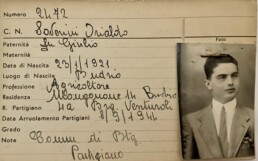 Numero 2472
C. N. Savorini Irialdo
Foto
Paternità fu Giulio
MATERNITÀ
Data di Nascita 23/1/1921
Luogo di Nascita Budrio
Professione Agricoltore
Residenza 14 Budrio
B. Partigiano 4a Brg. Venturoli
Data Arruolamento Partigiani 1944
Grado
Note Comm. di Btg.
Partigiano